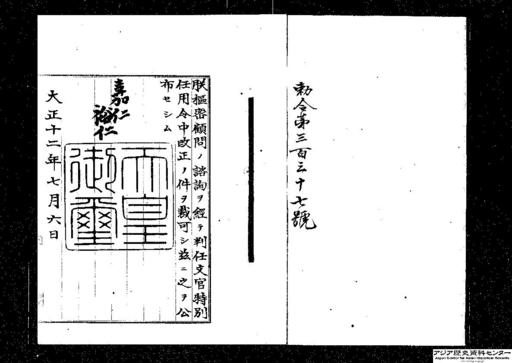 勅令第三百三十七號
朕樞密顧問ノ諮詢ヲ經テ判任文官特別
任用令中改正ノ件ヲ裁可シ茲ニ之ヲ公
布セシム
嘉仁
裕仁
天皇
御璽
大正十二年七月六日
アジア歴史資料センター
Japan Center for Asian Historical Records